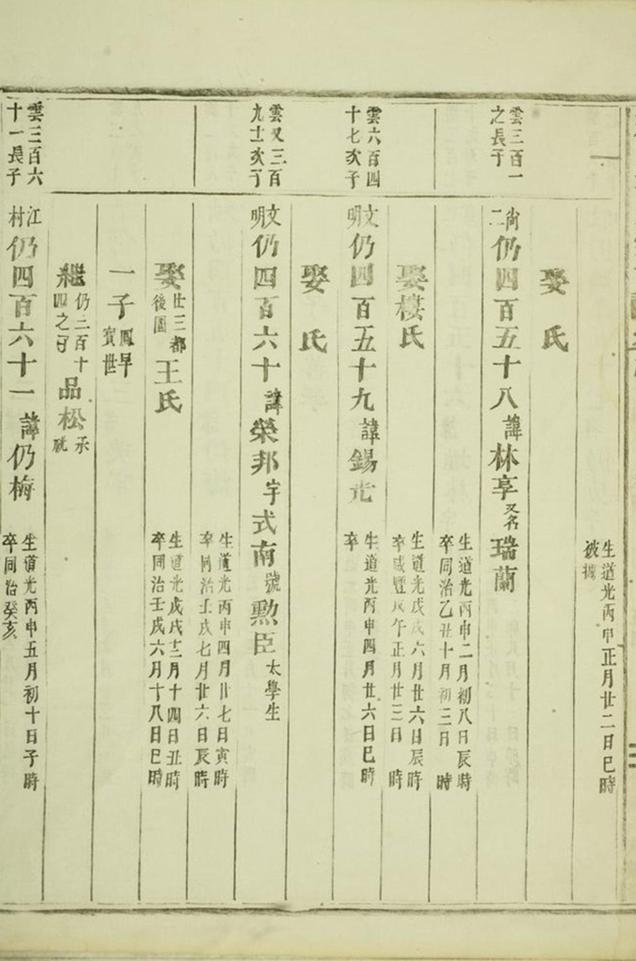 生道光丙申正月廿二日巳時
被擄
娶 氏
雲三百一
之長子
尙二
仍四百五十八諱林享又名瑞蘭
生道光丙申二月初八日辰時
卒同治乙丑十月初三日 時
娶樓氏
生道光戊戌六月廿六日辰時
卒咸豐戊午正月廿三日 時
雲六百四
十七次子
文明
仍四百五十九諱錫光
生道光丙申四月廿六日巳時
卒
娶 氏
雲又三百
九十次子
文明
仍四百六十諱榮邦字式南號勲臣太學生
生道光丙申四月廿七日寅時
卒同治壬戌七月廿六日辰時
娶
廿三都
後園
王氏
生道光戊戌十二月十四日丑時
卒同治壬戌六月十八日巳時
一子
鳳早
賓世
繼
仍二百十
四之子
品松
承
祧
雲三百六
十一長子
江村
仍四百六十一諱仍梅
生道光丙申五月初十日子時
卒同治癸亥